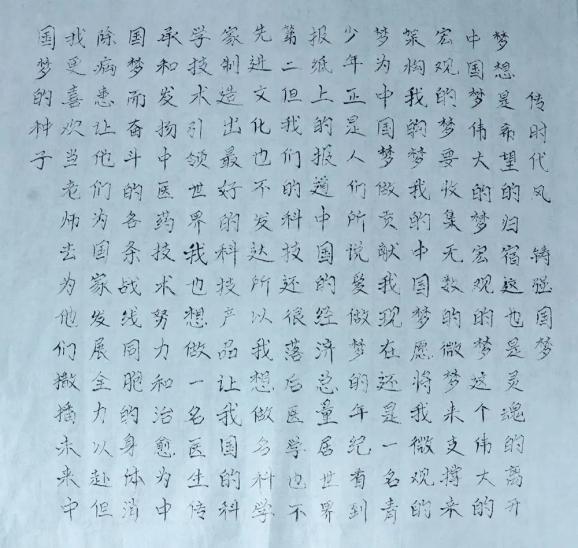 传时代风 铸强国梦
梦想是希望的归宿这也是灵魂的离开
中国梦伟大的梦宏观的梦这个伟大的
宏观的梦要收集无数的微梦来支撑来
架构我的梦我的中国梦愿将我微观的
梦为中国梦做贡献我现在还是一名青
少年正是人们所说爱做梦的年纪有到
报纸上的报道中国的经济总量居世界
第二但我们的科技还很落后医学也不
先进文化也不发达所以我想做名科学
家制造出最好的科技产品让我国的科
学技术引领世界我也想做一名医生传
承和发扬中医药技术努力和治愈为中
国梦而奋斗的各条战线同胞的身体消
除病患让他们为国家发展全力以赴但
我更喜欢当老师去为他们撒播未来中
国梦的种子